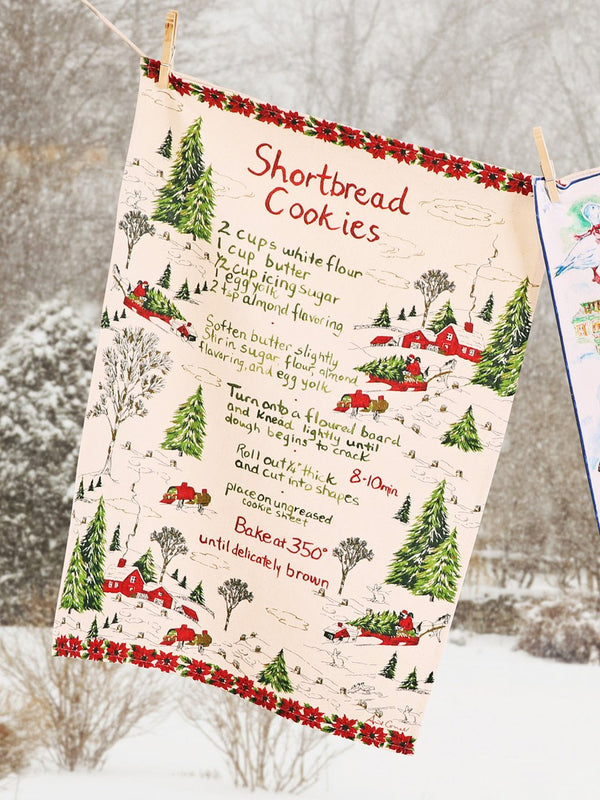 Shortbread
Cookies
2 cups white flour
1 cup butter
½ cup icing sugar
1 egg yolk
2 tsp almond flavoring
Soften butter slightly
Stir in sugar flour almond
flavoring, and egg yolk
Turn onto a floured board
and knead lightly until
dough begins to crack
Roll out ¼" thick
and cut into shapes
8-10 min
place on ungreased
cookie sheet
Bake at 350°
until delicately brown